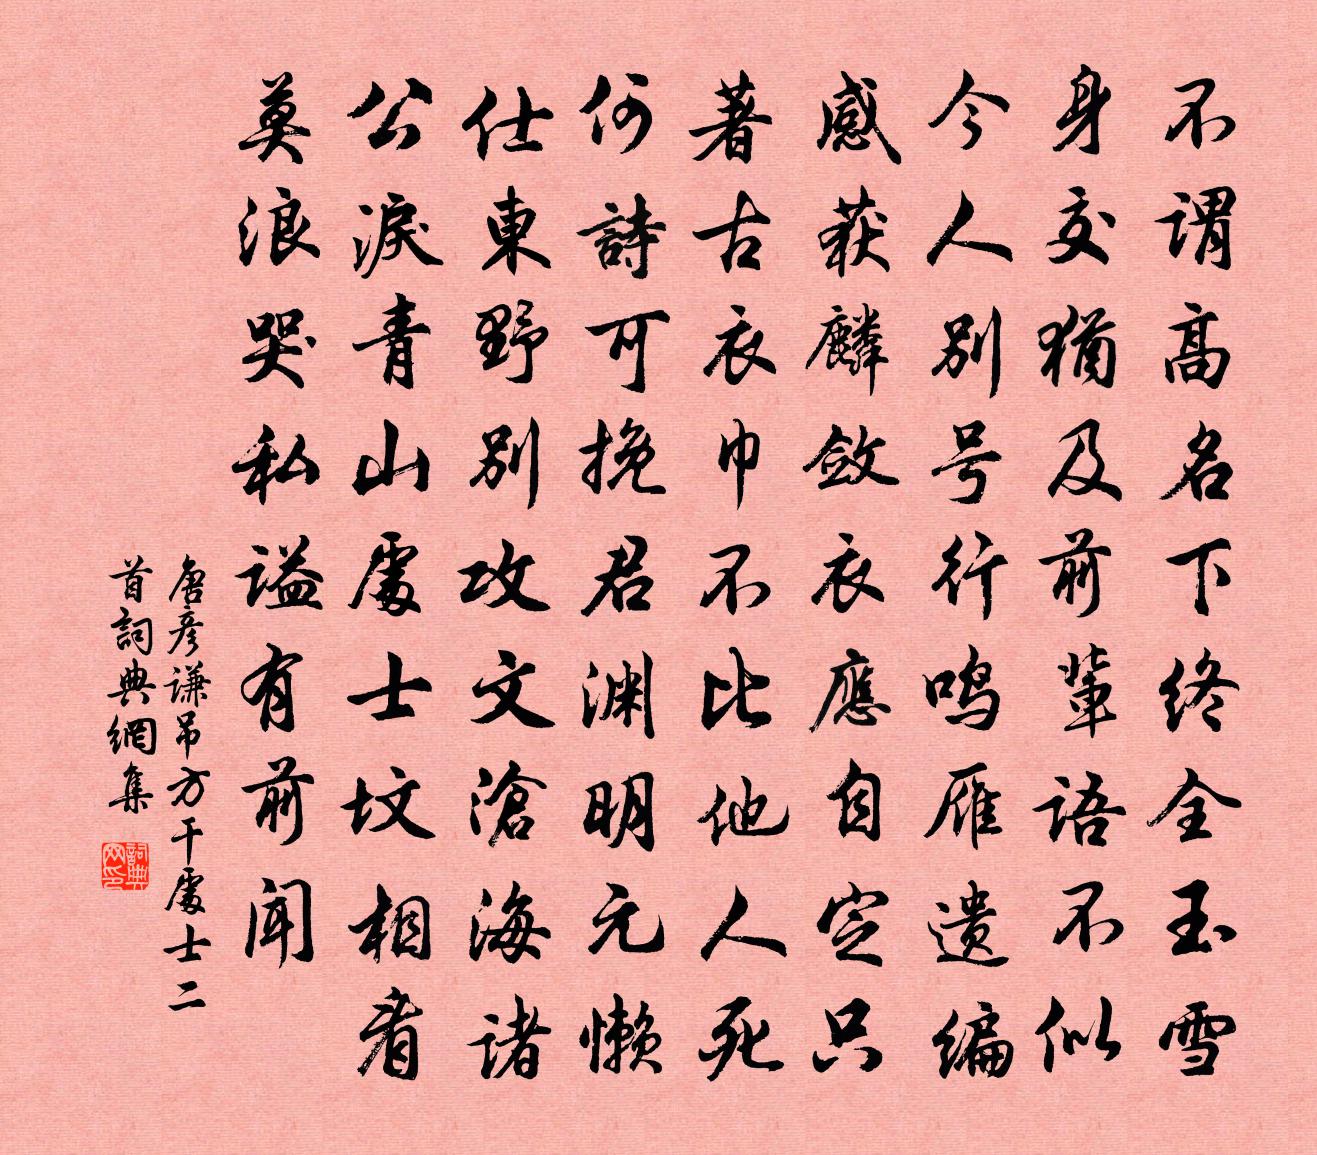 不谓高名下终全玉雪
身交犹及前辈语不似
今人别号行鸣雁遗编
感获麟敛衣应自定只
著古衣巾不比他人死
何詩可挽君渊明元懒
仕東野别攻文滄海诸
公淚青山處士坟相看
莫浪哭私谥有前闻
唐彦谦吊方干處士二
首詞典網集
詞典网印